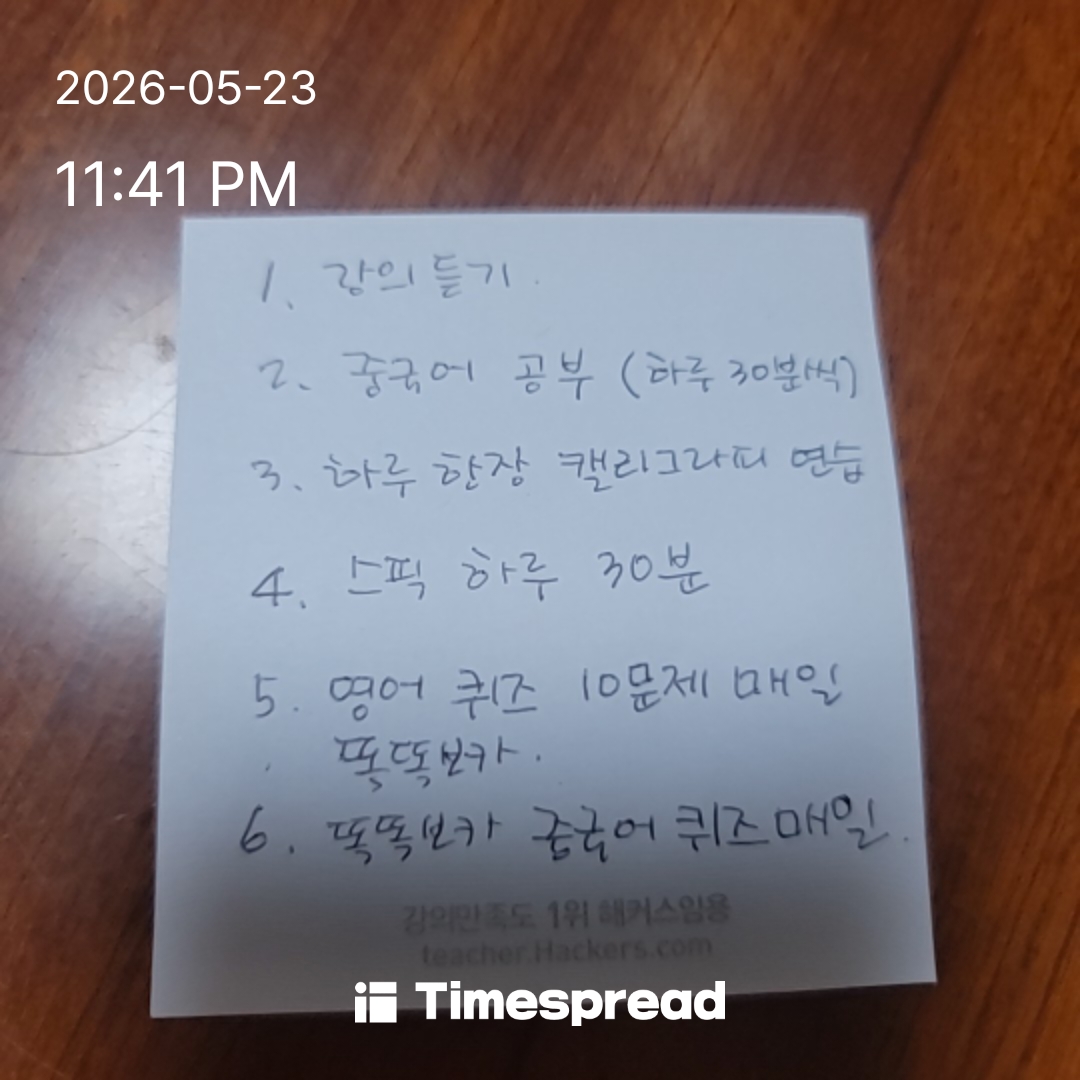 2026-05-23
11:41 PM
1. 강의 듣기.
2. 중국어 공부 (하루 30분씩)
3. 하루 한장 캘리그라피 연습
4. 스픽 하루 30분
5. 영어 퀴즈 10문제 매일
똑똑보카.
6. 똑똑보카 중국어 퀴즈 매일.
강의만족도 1위 해커스임용
teacher.Hackers.com
Timespread